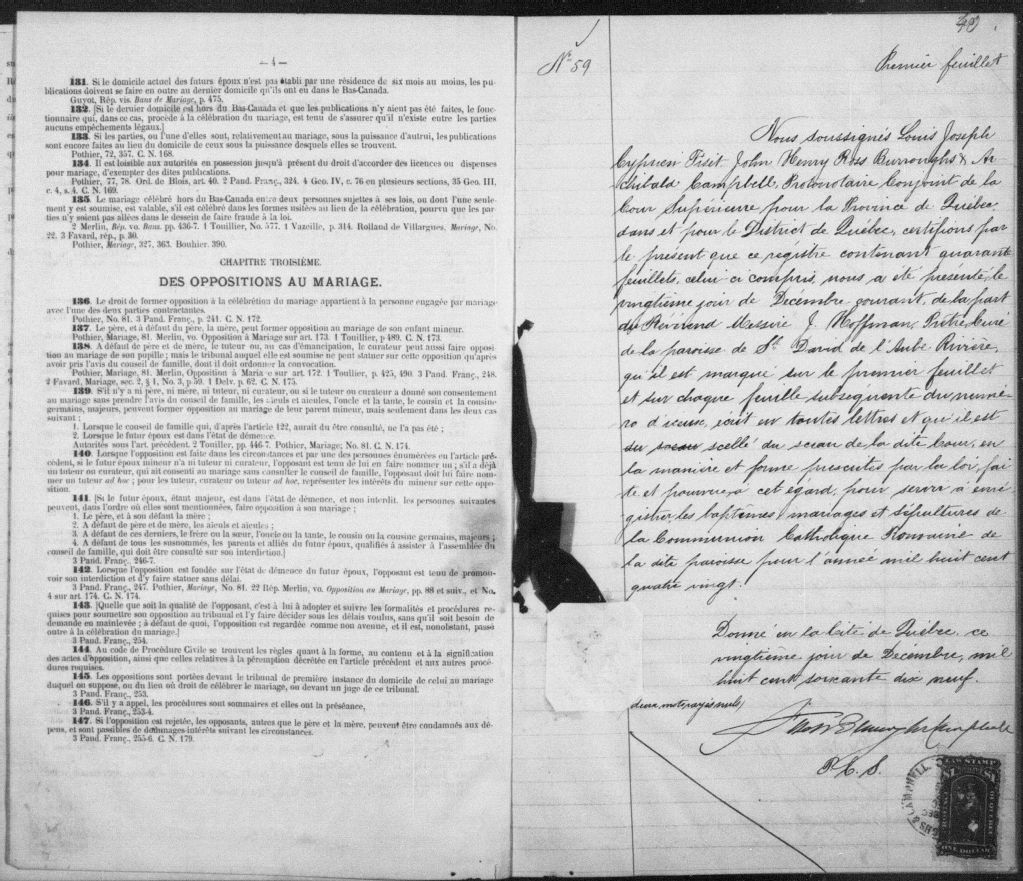 — 4 —
131. Si le domicile actuel des futurs époux n'est pas établi par une résidence de six mois au moins, les pu-
blications doivent se faire en outre au dernier domicile qu'ils ont eu dans le Bas-Canada.
Guyot, Rép. vis. Bans de Mariage, p. 475.
132. [Si le dernier domicile est hors du Bas-Canada et que les publications n'y aient pas été faites, le fonc-
tionnaire qui, dans ce cas, procède à la célébration du mariage, est tenu de s'assurer qu'il n'existe entre les parties
aucuns empêchements légaux.]
133. Si les parties, ou l'une d'elles sont, relativement au mariage, sous la puissance d'autrui, les publications
sont encore faites au lieu du domicile de ceux sous la puissance desquels elles se trouvent.
Pothier, 72, 357. C. N. 168.
134. Il est loisible aux autorités en possession jusqu'à présent du droit d'accorder des licences ou dispenses
pour mariage, d'exempter des dites publications.
Pothier, 77, 78. Ord. de Blois, art. 40. 2 Pand. Franç., 324. 4 Geo. IV, c. 76 en plusieurs sections, 35 Geo. III,
c. 4, s. 4. C. N. 169.
135. Le mariage célébré hors du Bas-Canada entre deux personnes sujettes à ses lois, ou dont l'une seule-
ment y est soumise, est valable, s'il est célébré dans les formes usitées au lieu de la célébration, pourvu que les par
ties n'y soient pas allées dans le dessein de faire fraude à la loi.
2 Merlin, Rép. vo. Bans. pp. 436-7. 1 Touillier, No. 577. 1 Vazeille, p. 314. Rolland de Villargues, Mariage, No.
22. 3 Favard, rép., p. 30.
Pothier, Mariage, 327, 363. Bouhier. 390.
CHAPITRE TROISIÈME.
DES OPPOSITIONS AU MARIAGE.
136. Le droit de former opposition à la célébration du mariage appartient à la personne engagée par mariage
avec l'une des deux parties contractantes.
Pothier, No. 81. 3 Pand. Franç., p. 241. C. N. 172.
137. Le père, et à défaut du père, la mère, peut former opposition au mariage de son enfant mineur.
Pothier, Mariage, 81. Merlin, vo. Opposition à Mariage sur art. 173. 1 Touillier, p. 489, C. N. 173.
138. A défaut de père et de mère, le tuteur ou, au cas d'émancipation, le curateur peut aussi faire opposi
tion au mariage de son pupille; mais le tribunal auquel elle est soumise ne peut statuer sur cette opposition qu'après
avoir pris l'avis du conseil de famille, dont il doit ordonner la convocation.
Pothier, Mariage, 81. Merlin, Opposition à Maria e sur art. 172. 1 Toullier, p. 425, 490. 3 Pand. Franç., 248.
2 Favard, Mariage, sec. 2, § 4, No. 3, p 59. 1 Delv. p. 62. C. N. 175.
139. S'il n'y a ni père, ni mère, ni tuteur, ni curateur, ou si le tuteur ou curateur a donné son consentement
au mariage sans prendre l'avis du conseil de famille, les aïeuls et aïeules, l'oncle et la tante, le cousin et la cousine
germains, majeurs, peuvent former opposition au mariage de leur parent mineur, mais seulement dans les deux cas
suivant:
1. Lorsque le conseil de famille qui, d'après l'article 122, aurait du être consulté, ne l'a pas été;
2. Lorsque le futur époux est dans l'état de démence.
Autorités sous l'art. précédent. 2 Touillier, pp. 446-7. Pothier, Mariage; No. 81. C. N. 174.
140. Lorsque opposition est faite dans les circonstances et par une des personnes énumérées en l'article pré-
cédent, si le futur époux mineur n'a ni tuteur ni curateur, l'opposant est tenu de lui en faire nommer un; s'il a déjà
un tuteur ou curateur, qui ait consenti au mariage sans consulter le conseil de famille, l'opposant doit lui faire nom-
mer un tuteur ad hoc; pour les tuteur, curateur ou tuteur ad hoc, représenter les intérêts du mineur sur cette oppo-
sition.
141. [Si le futur époux, étant majeur, est dans l'état de démence, et non interdit, les personnes suivantes
peuvent, dans l'ordre où elles sont mentionnées, faire opposition à son mariage;
1. Le père, et à son défaut la mère;
2. A défaut de père et de mère, les aïeuls et aïeules;
3. A défaut de ces derniers, le frère ou la sœur, l'oncle ou la tante, le cousin ou la cousine germains, majeurs;
4. A défaut de tous les susnommés, les parents et alliés du futur époux, qualifiés à assister à l'assemblée du
conseil de famille, qui doit être consulté sur son interdiction.]
3 Pand. Franç., 246-7.
142. Lorsque l'opposition est fondée sur l'état de démence du futur époux, l'opposant est tenu de promou-
voir son interdiction et d'y faire statuer sans délai.
3 Pand. Franç., 247. Pothier, Mariage, No. 81. 22 Rép. Merlin, vo. Opposition au Mariage, pp. 88 et suiv., et No.
4 sur art. 174. C. N. 174.
143. [Quelle que soit la qualité de l'opposant, c'est à lui à adopter et suivre les formalités et procédures re-
quises pour soumettre son opposition au tribunal et l'y faire décider sous les délais voulus, sans qu'il soit besoin de
demande en mainlevée; à défaut de quoi, l'opposition est regardée comme non avenue, et il est, nonobstant, passé
outre à la célébration du mariage.]
3 Pand. Franç., 254.
144. Au code de Procédure Civile se trouvent les règles quant à la forme, au contenu et à la signification
des actes d'opposition, ainsi que celles relatives à la péremption décrétée en l'article précédent et aux autres procé-
dures requises.
145. Les oppositions sont portées devant le tribunal de première instance du domicile de celui au mariage
duquel on s'oppose, ou du lieu où droit de célébrer le mariage, ou devant un juge de ce tribunal.
3 Pand. Franç., 253.
146. S'il y a appel, les procédures sont sommaires et elles ont la préséance,
3 Pand. Franç., 253-4.
147. Si l'opposition est rejetée, les opposants, autres que le père et la mère, peuvent être condamnés aux dé-
pens, et sont passibles de dommages-intérêts suivant les circonstances.
3 Pand. Franç., 255-6. C. N. 179.
49
No 59
Premier feuillet
Nous soussignés Louis Joseph
Cyprien Fiset, John Henry Ross Burroughs & Ar
chibald Campbell, Protonotaire Conjoint de la
Cour Supérieure pour la Province de Québec
dans et pour le District de Québec, certifions par
le présent que ce régistre contenant quarante
feuillets, celui ci compris, nous a été présenté le
vingtième jour de Décembre courant, de la part
du Révérend Messire J. Hoffman, Prêtre Curé
de la paroisse de St David de l'Aube Rivière,
qu'il est marqué sur le premier feuillet
et sur chaque feuille subséquente du numé
ro d'icelle, écrit en toutes lettres et qu'il est
du sceau scellé du sceau de la dite Cour, en
la manière et forme prescrites par la loi, fai
te et pourvue à cet égard, pour servir à enré
gistrer les baptêmes, mariages et sépultures de
la Communion Catholique Romaine de
la dite paroisse pour l'année mil huit cent
quatre vingt.
Donné en la Cité de Québec, ce
vingtième jour de Décembre, mil
huit cent soixante dix neuf.
deux mots rayés nuls
Fiset Burroughs Campbell
P. C. S.
LAW STAMP
OF QUEBEC
ONE DOLLAR